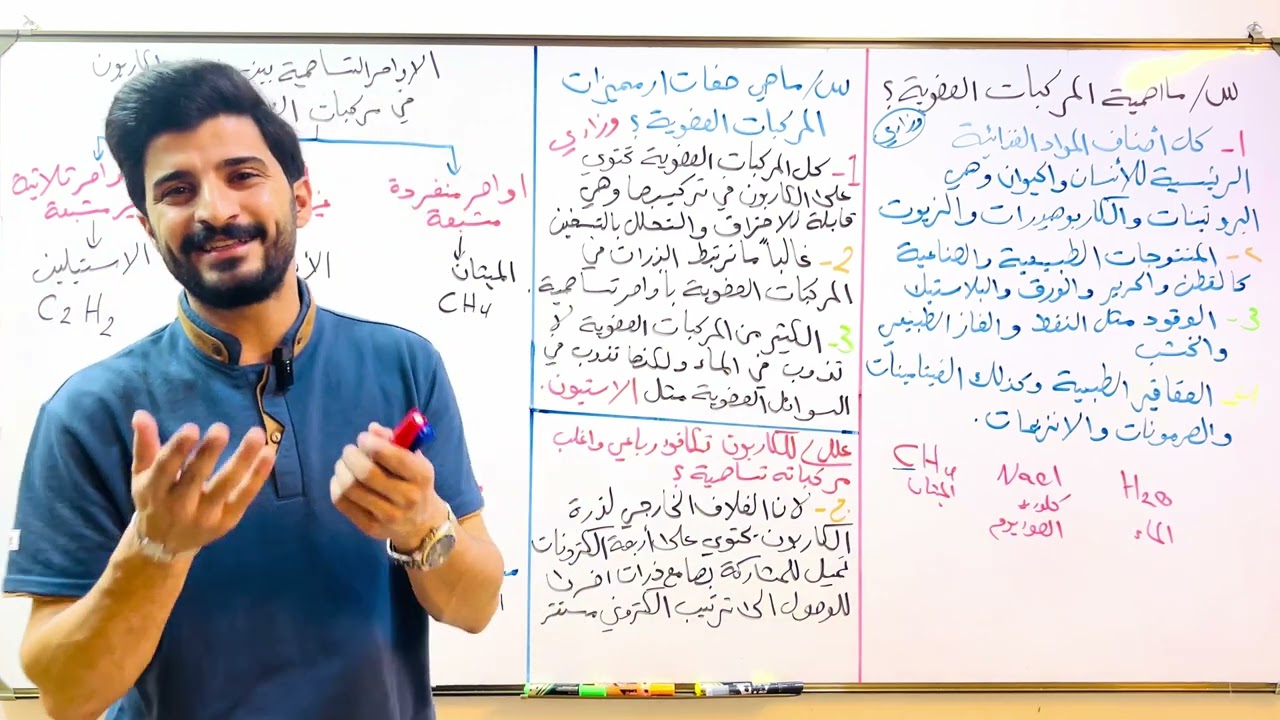 س/ ما اهمية المركبات العضوية؟
وزاري
1- كل أصناف المواد الغذائية
الرئيسية للأنسان والحيوان وهي
البروتينات والكاربوهيدرات والزيوت
2- المنتوجات الطبيعية والصناعية
كالقطن والحرير والورق والبلاستيك
3- الوقود مثل النفط والغاز الطبيعي
والخشب
4- العقاقير الطبية وكذلك الفيتامينات
والهرمونات والانزيمات.
CH4 NaCl H2O
الميثان كلوريد الماء
الصوديوم
س/ ماهي صفات او مميزات
المركبات العضوية؟ وزاري
1- كل المركبات العضوية تحتوي
على الكاربون في تركيبها وهي
قابلة للاحتراق والتحلل بالتسخين
2- غالباً ما ترتبط الذرات في
المركبات العضوية بأواصر تساهمية.
3- الكثير من المركبات العضوية لا
تذوب في الماء ولكنها تذوب في
السوائل العضوية مثل الاستيون.
علل/ للكاربون تكافؤ رباعي واغلب
مركباته تساهمية؟
ج- لان الغلاف الخارجي لذرة
الكاربون يحتوي على أربعة الكترونات
تميل للمشاركة بها مع ذرات اخرى
للوصول الى ترتيب الكتروني مستقر
الاواصر التساهمية بين
في مركبات
اواصر منفردة
مشبعة
الميثان
CH4
ثلاثية
مشبعة
الاستيلين
C2H2